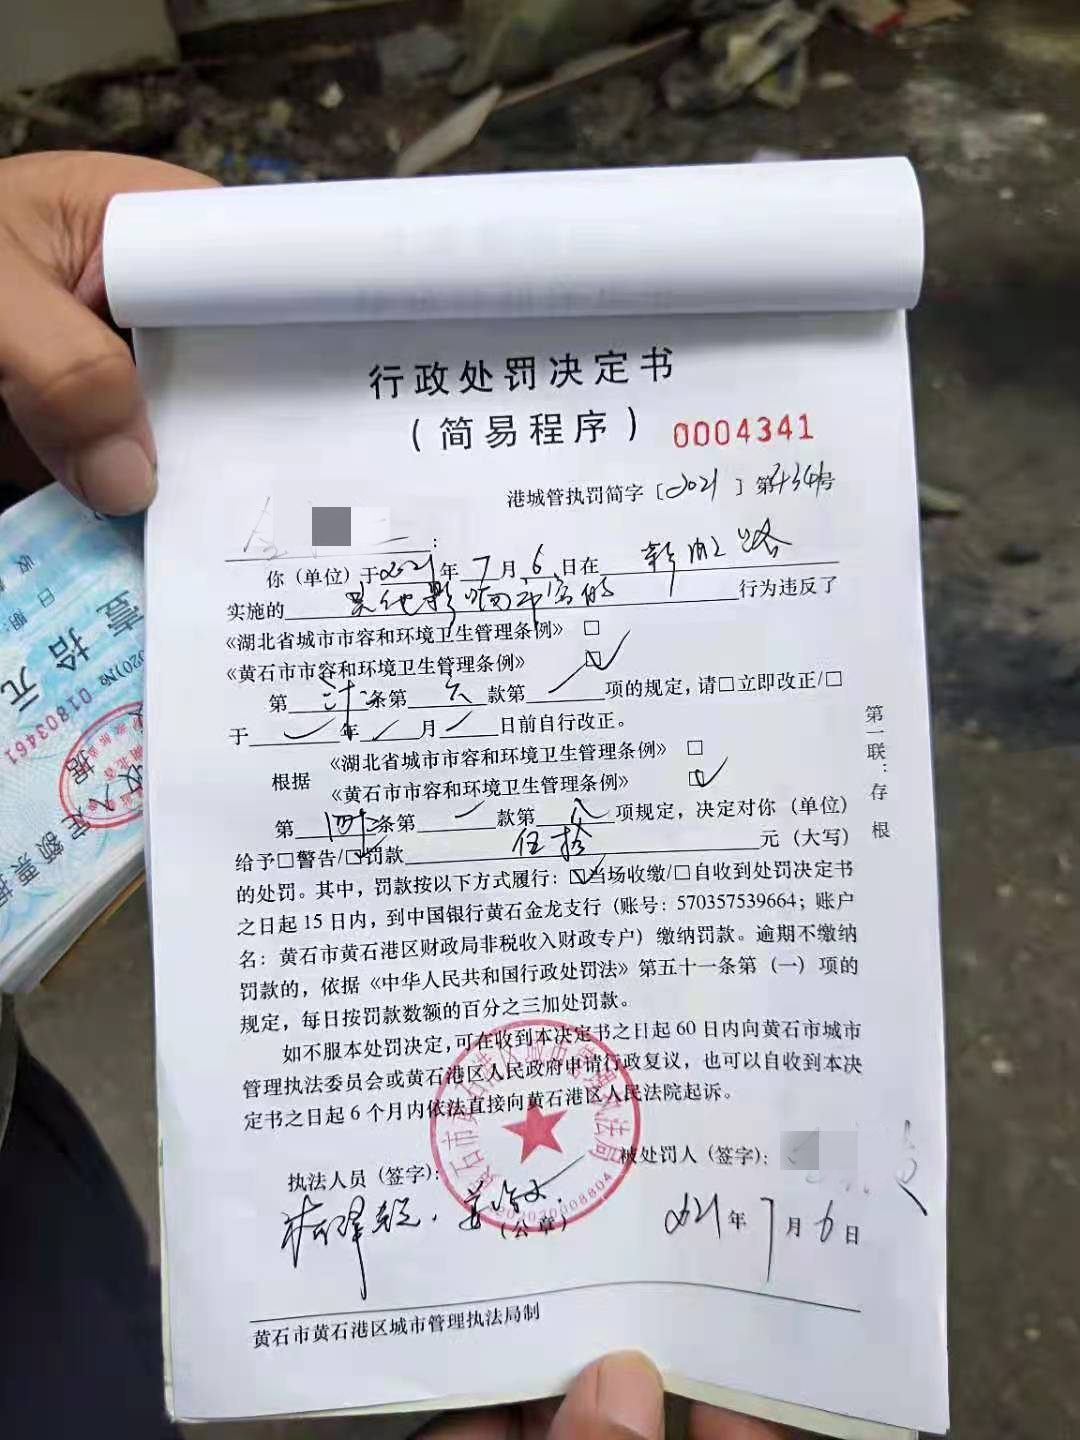 行政处罚决定书
（简易程序） 0004341
港城管执罚简字〔2021〕第4341号
：
你（单位）于2021年7月6日在 路
实施的 行为违反了
《湖北省城市市容和环境卫生管理条例》□
《黄石市市容和环境卫生管理条例》☑
第 条第 六 款第 项的规定，请□立即改正/□
于 年 月 日前自行改正。
根据 《湖北省城市市容和环境卫生管理条例》□
《黄石市市容和环境卫生管理条例》☑
第 条第 一 款第 八 项规定，决定对你（单位）
给予□警告/☑罚款 伍拾 元（大写）
的处罚。其中，罚款按以下方式履行：☑当场收缴/□自收到处罚决定书
之日起15日内，到中国银行黄石金龙支行（账号：570357539664；账户
名：黄石市黄石港区财政局非税收入财政专户）缴纳罚款。逾期不缴纳
罚款的，依据《中华人民共和国行政处罚法》第五十一条第（一）项的
规定，每日按罚款数额的百分之三加处罚款。
如不服本处罚决定，可在收到本决定书之日起60日内向黄石市城市
管理执法委员会或黄石港区人民政府申请行政复议，也可以自收到本决
定书之日起6个月内依法直接向黄石港区人民法院起诉。
执法人员（签字）： 被处罚人（签字）：
（公章） 2021年7月6日
黄石市黄石港区城市管理执法局制
第一联：存根
黄石市黄石港区城市管理执法局
4202030008804
壹拾元
01803461
收入定额票据
日期：